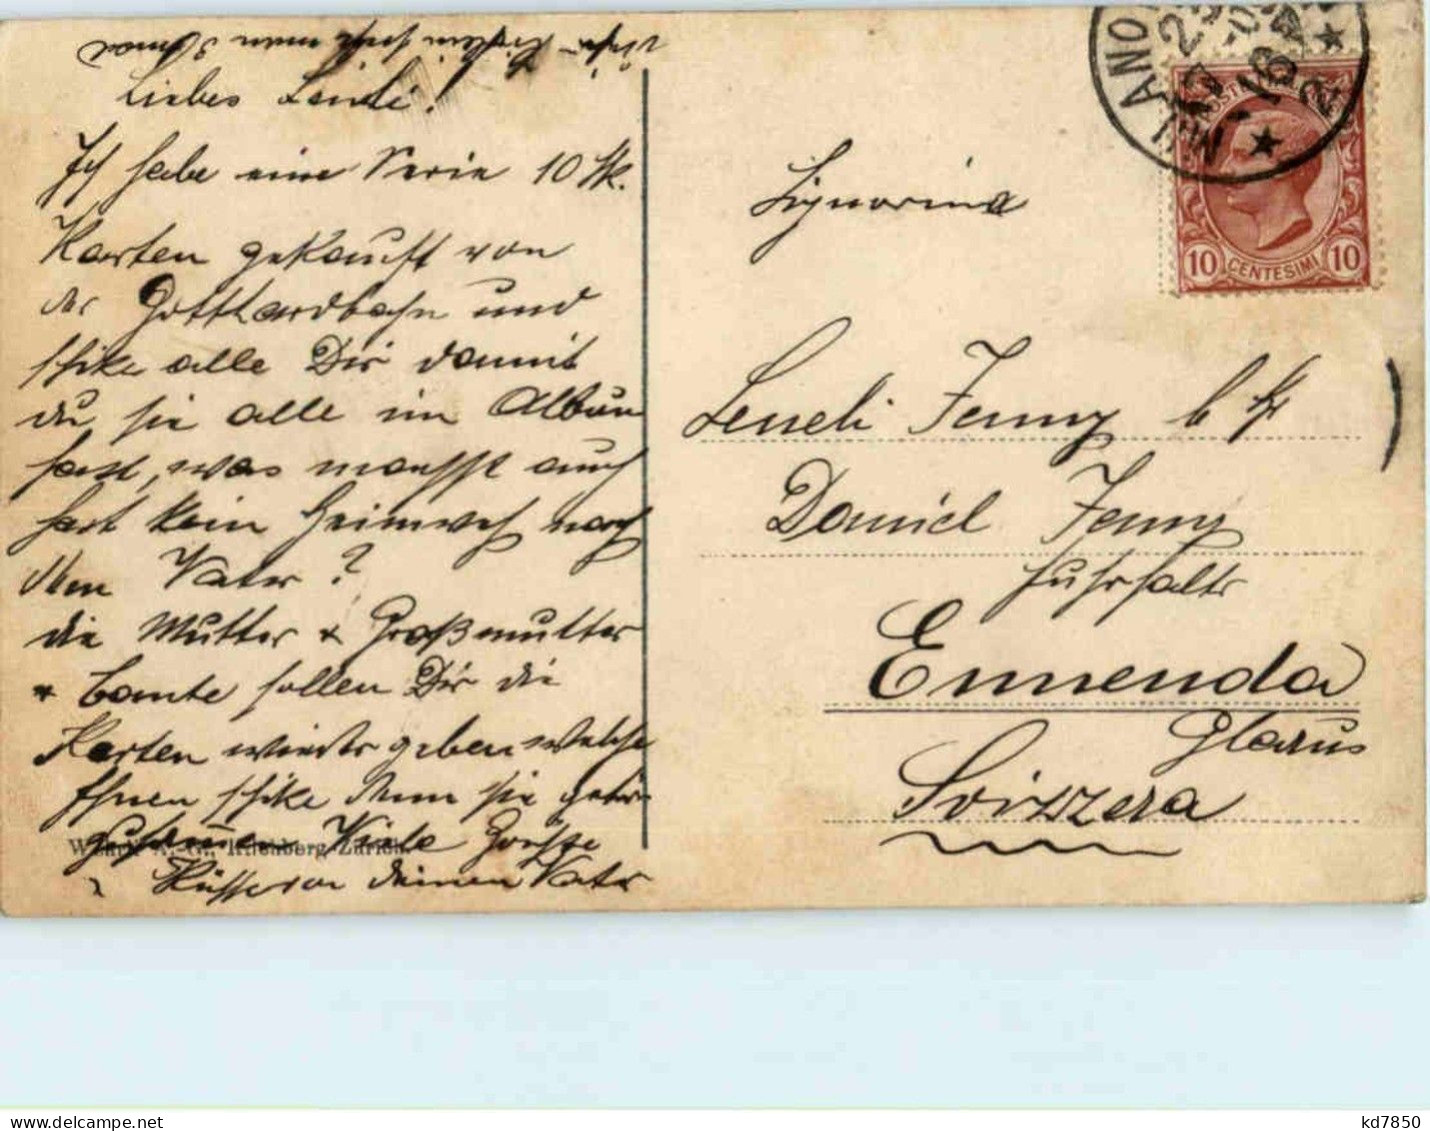 Liebes Leneli!
Ich habe eine Serie 10 Stk.
Karten gekauft von
der Gotthardbahn und
schike alle Dir damit
du sie alle im Album
hast, was machst auch
hast kein Heimweh nach
dem Vater?
die Mutter & Großmutter
& Tante sollen Dir die
Karten wieder geben welche
Ihnen schike denn sie
Viele Grüsse
& Küsse von deinem Vater
Kilchberg Zürich
MILANO
10 CENTESIMI 10
Signorina
Leneli Jenny b. Hr
Daniel Jenny
Fuhrhalter
Ennenda
Glarus
Svizzera
kd7850